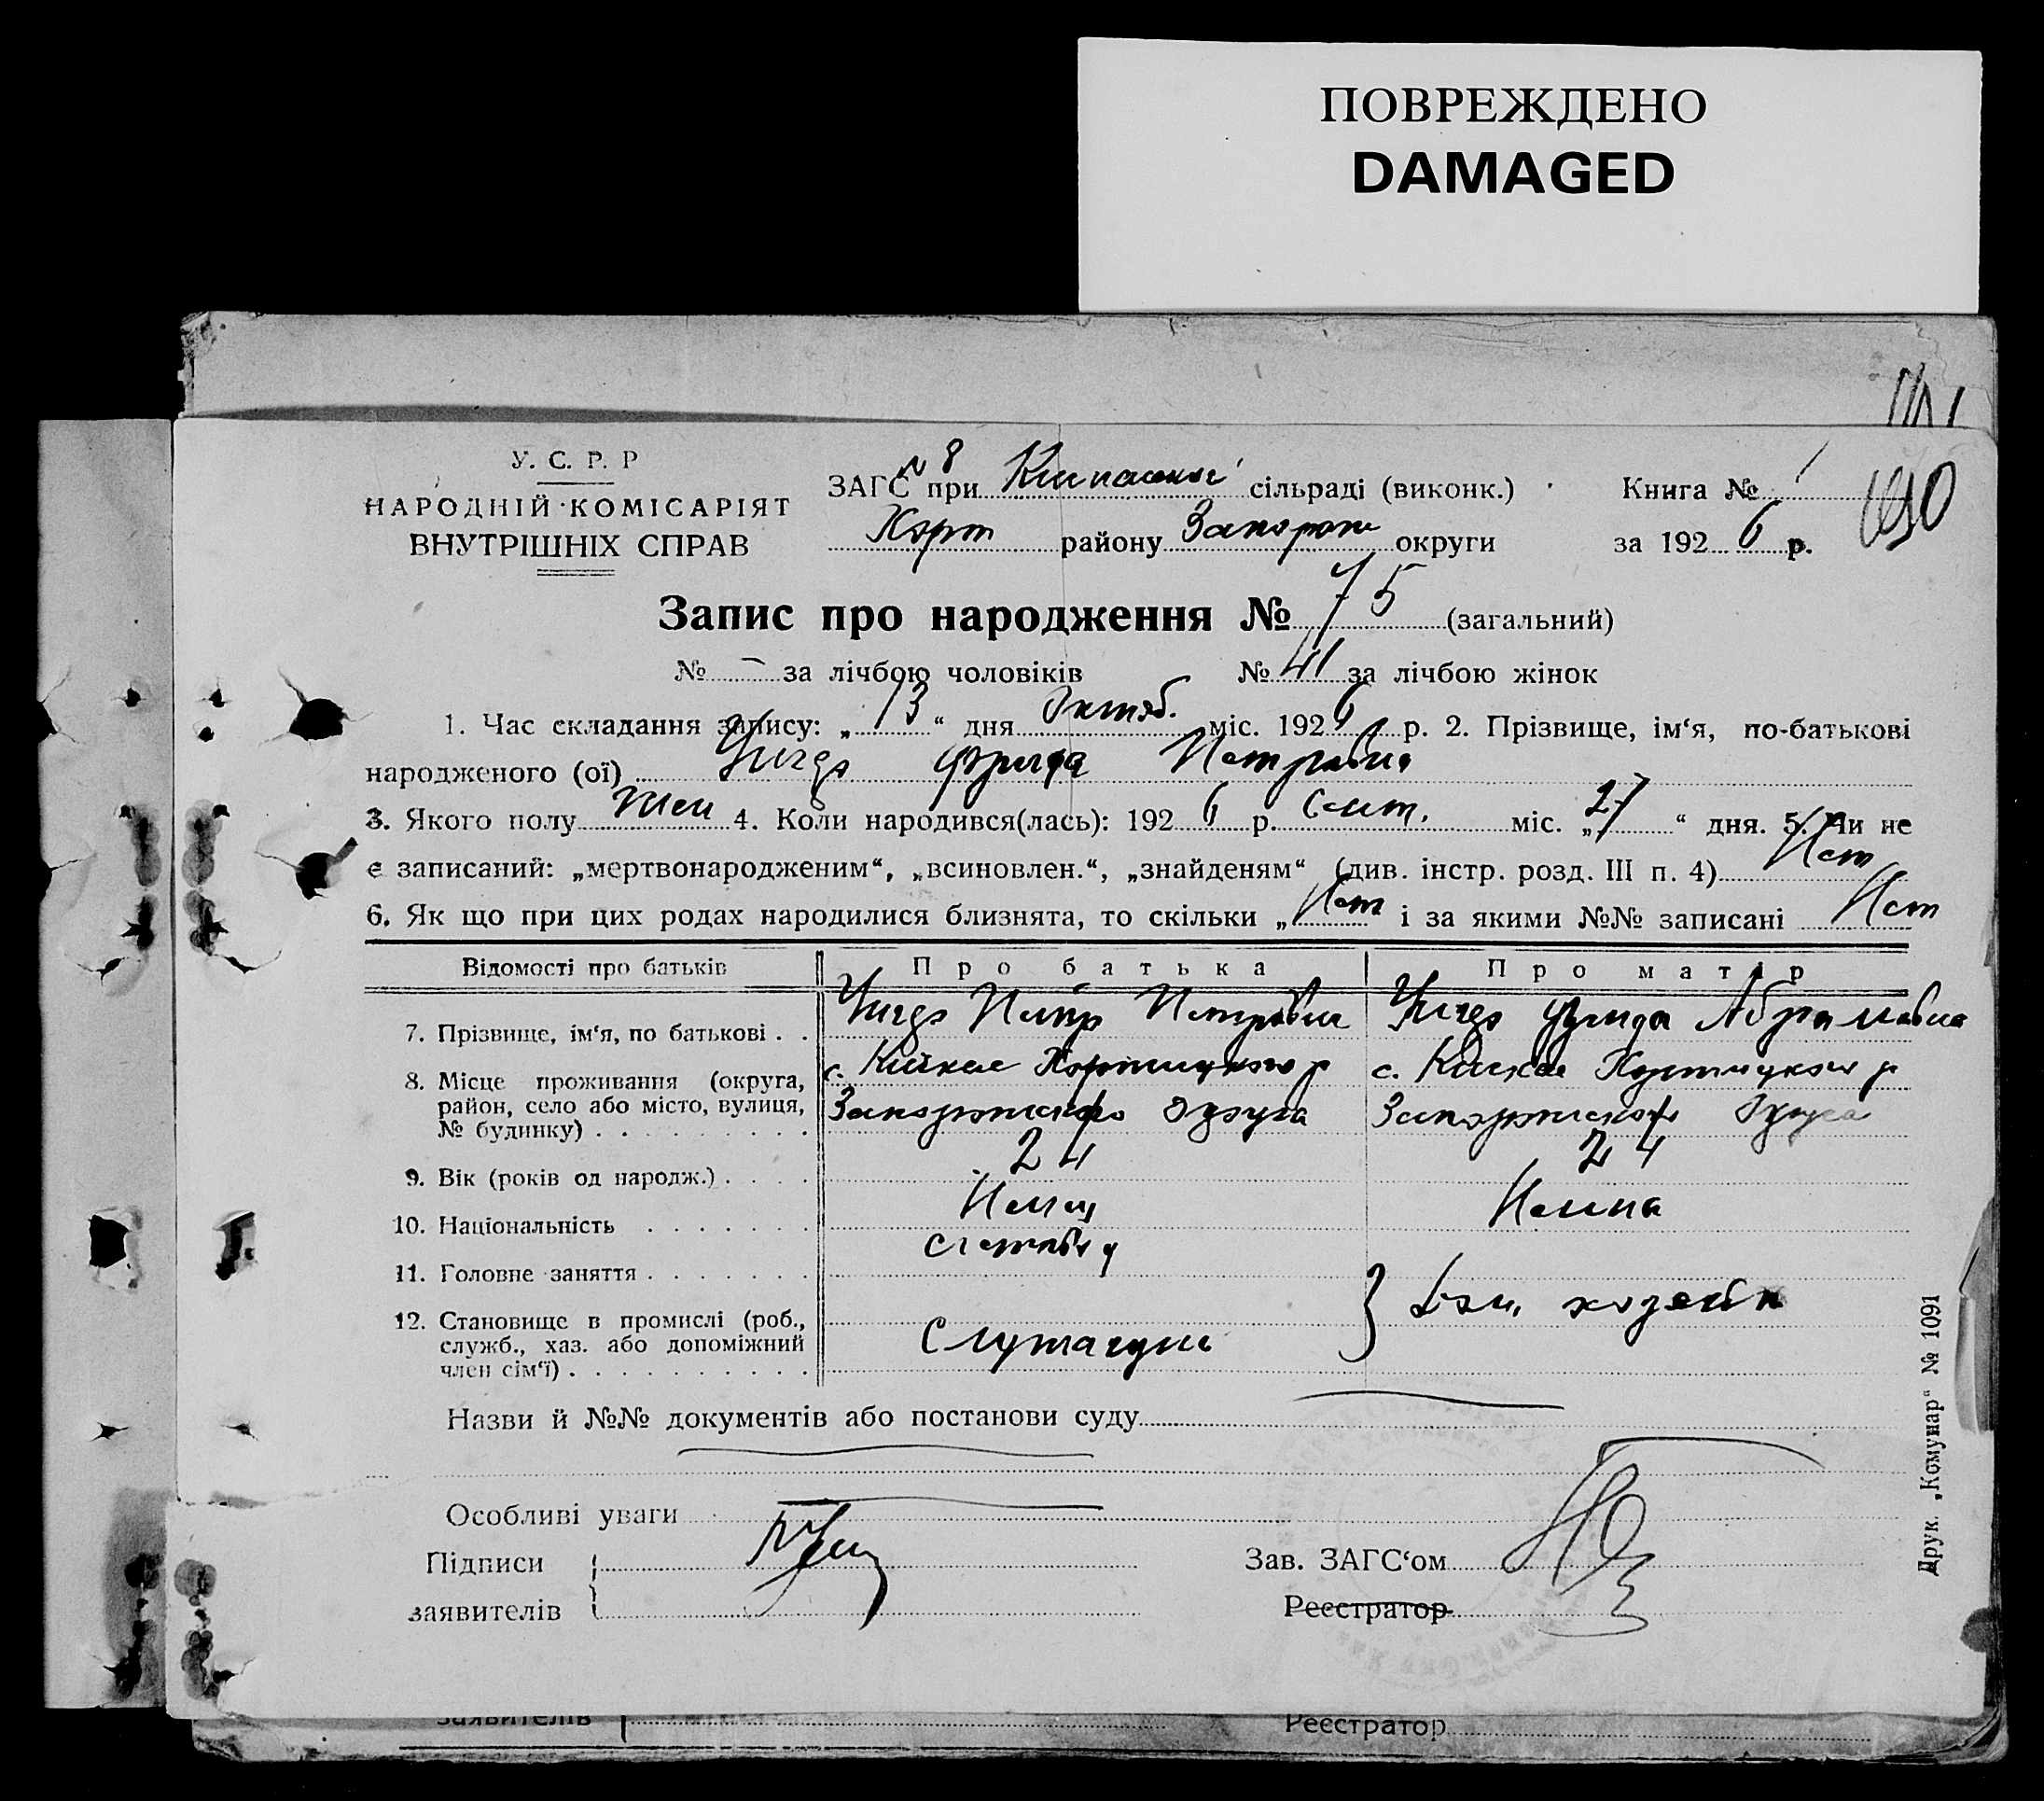 ПОВРЕЖДЕНО
DAMAGED
У. С. Р. Р
НАРОДНІЙ КОМІСАРІЯТ
ВНУТРІШНІХ СПРАВ
ЗАГС № 8 при сільраді (виконк.)
Хорт району Запорож округи
Книга № 1
за 1926 р.
Запис про народження № 75 (загальний)
№ - за лічбою чоловіків № 41 за лічбою жінок
1. Час складання запису: „ 13 “ дня Октяб. міс. 1926 р. 2. Прізвище, ім‘я, по-батькові
народженого (ої) Фрида Петровна
3. Якого полу жен 4. Коли народився(лась): 1926 р. Сент. міс. „ 27 “ дня. 5. Чи не
є записаний: „мертвонародженим“, „всиновлен.“, „знайденям“ (див. інстр. розд. III п. 4) Нет
6. Як що при цих родах народилися близнята, то скільки „ Нет і за якими №№ записані Нет
Відомості про батьків Про батька Про матір
7. Прізвище, ім‘я, по батькові . . Петрович Фрида Абрамовна
8. Місце проживання (округа, район, село або місто, вулиця, № будинку) . . . . . . . . .
с. Хортицкого р
Запорожского округа
с. Хортицкого р
Запорожского округа
9. Вік (років од народж.) . . . . 24 24
10. Національність . . . . . . . Немец Немка
11. Головне заняття . . . . . . . счетовод
12. Становище в промислі (роб., служб., хаз. або допоміжний член сім‘ї) . . . . . . . . . . Служащий
} Дом. хозяйк
Назви й №№ документів або постанови суду
Особливі уваги
Підписи
заявителів
Зав. ЗАГС‘ом
Реєстратор
Друк. „Комунар“ № 1091
заявителів
Реєстратор